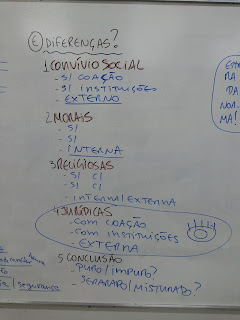 E) DIFERENÇAS?
1 CONVÍVIO SOCIAL
- S/ COAÇÃO
- S/ INSTITUIÇÕES
- EXTERNO
2 MORAIS
- S/
- S/
- INTERNA
3 RELIGIOSAS
- S/ C/
- S/ C/
- INTERNA/EXTERNA
4 JURÍDICAS
- COM COAÇÃO
- COM INSTITUIÇÕES
- EXTERNA
5 CONCLUSÃO
- PURO/IMPURO?
- SEPARADO/MISTURADO?
RA
DA
NOR-
MA!
segurança